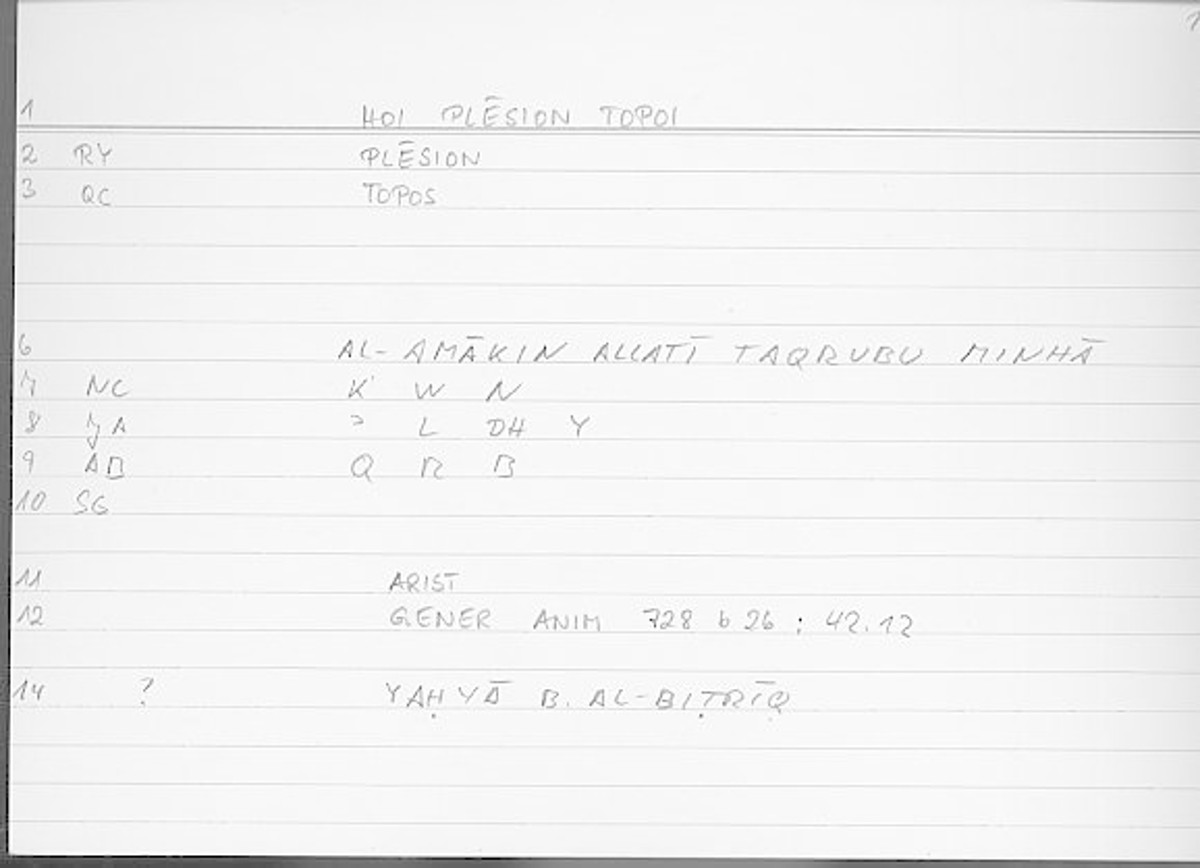 1 HOI PLĒSION TOPOI
2 RY PLĒSION
3 QC TOPOS
6 AL-AMĀKIN ALLATĪ TAQRUBU MINHĀ
7 NC K W N
8 JA ʾ L DH Y
9 AB Q R B
10 SG
11 ARIST
12 GENER ANIM 728 b 26 ; 42.12
14 ? YAḤYĀ B. AL-BIṬRĪQ